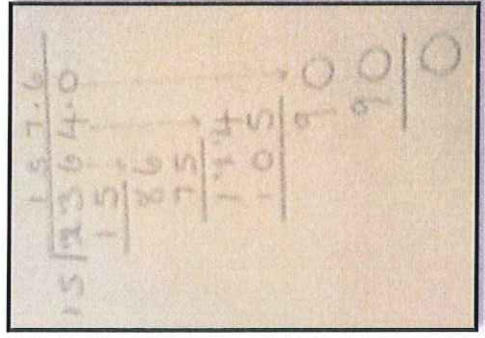 157.6
15 2364.0
15
86
75
114
105
90
90
0